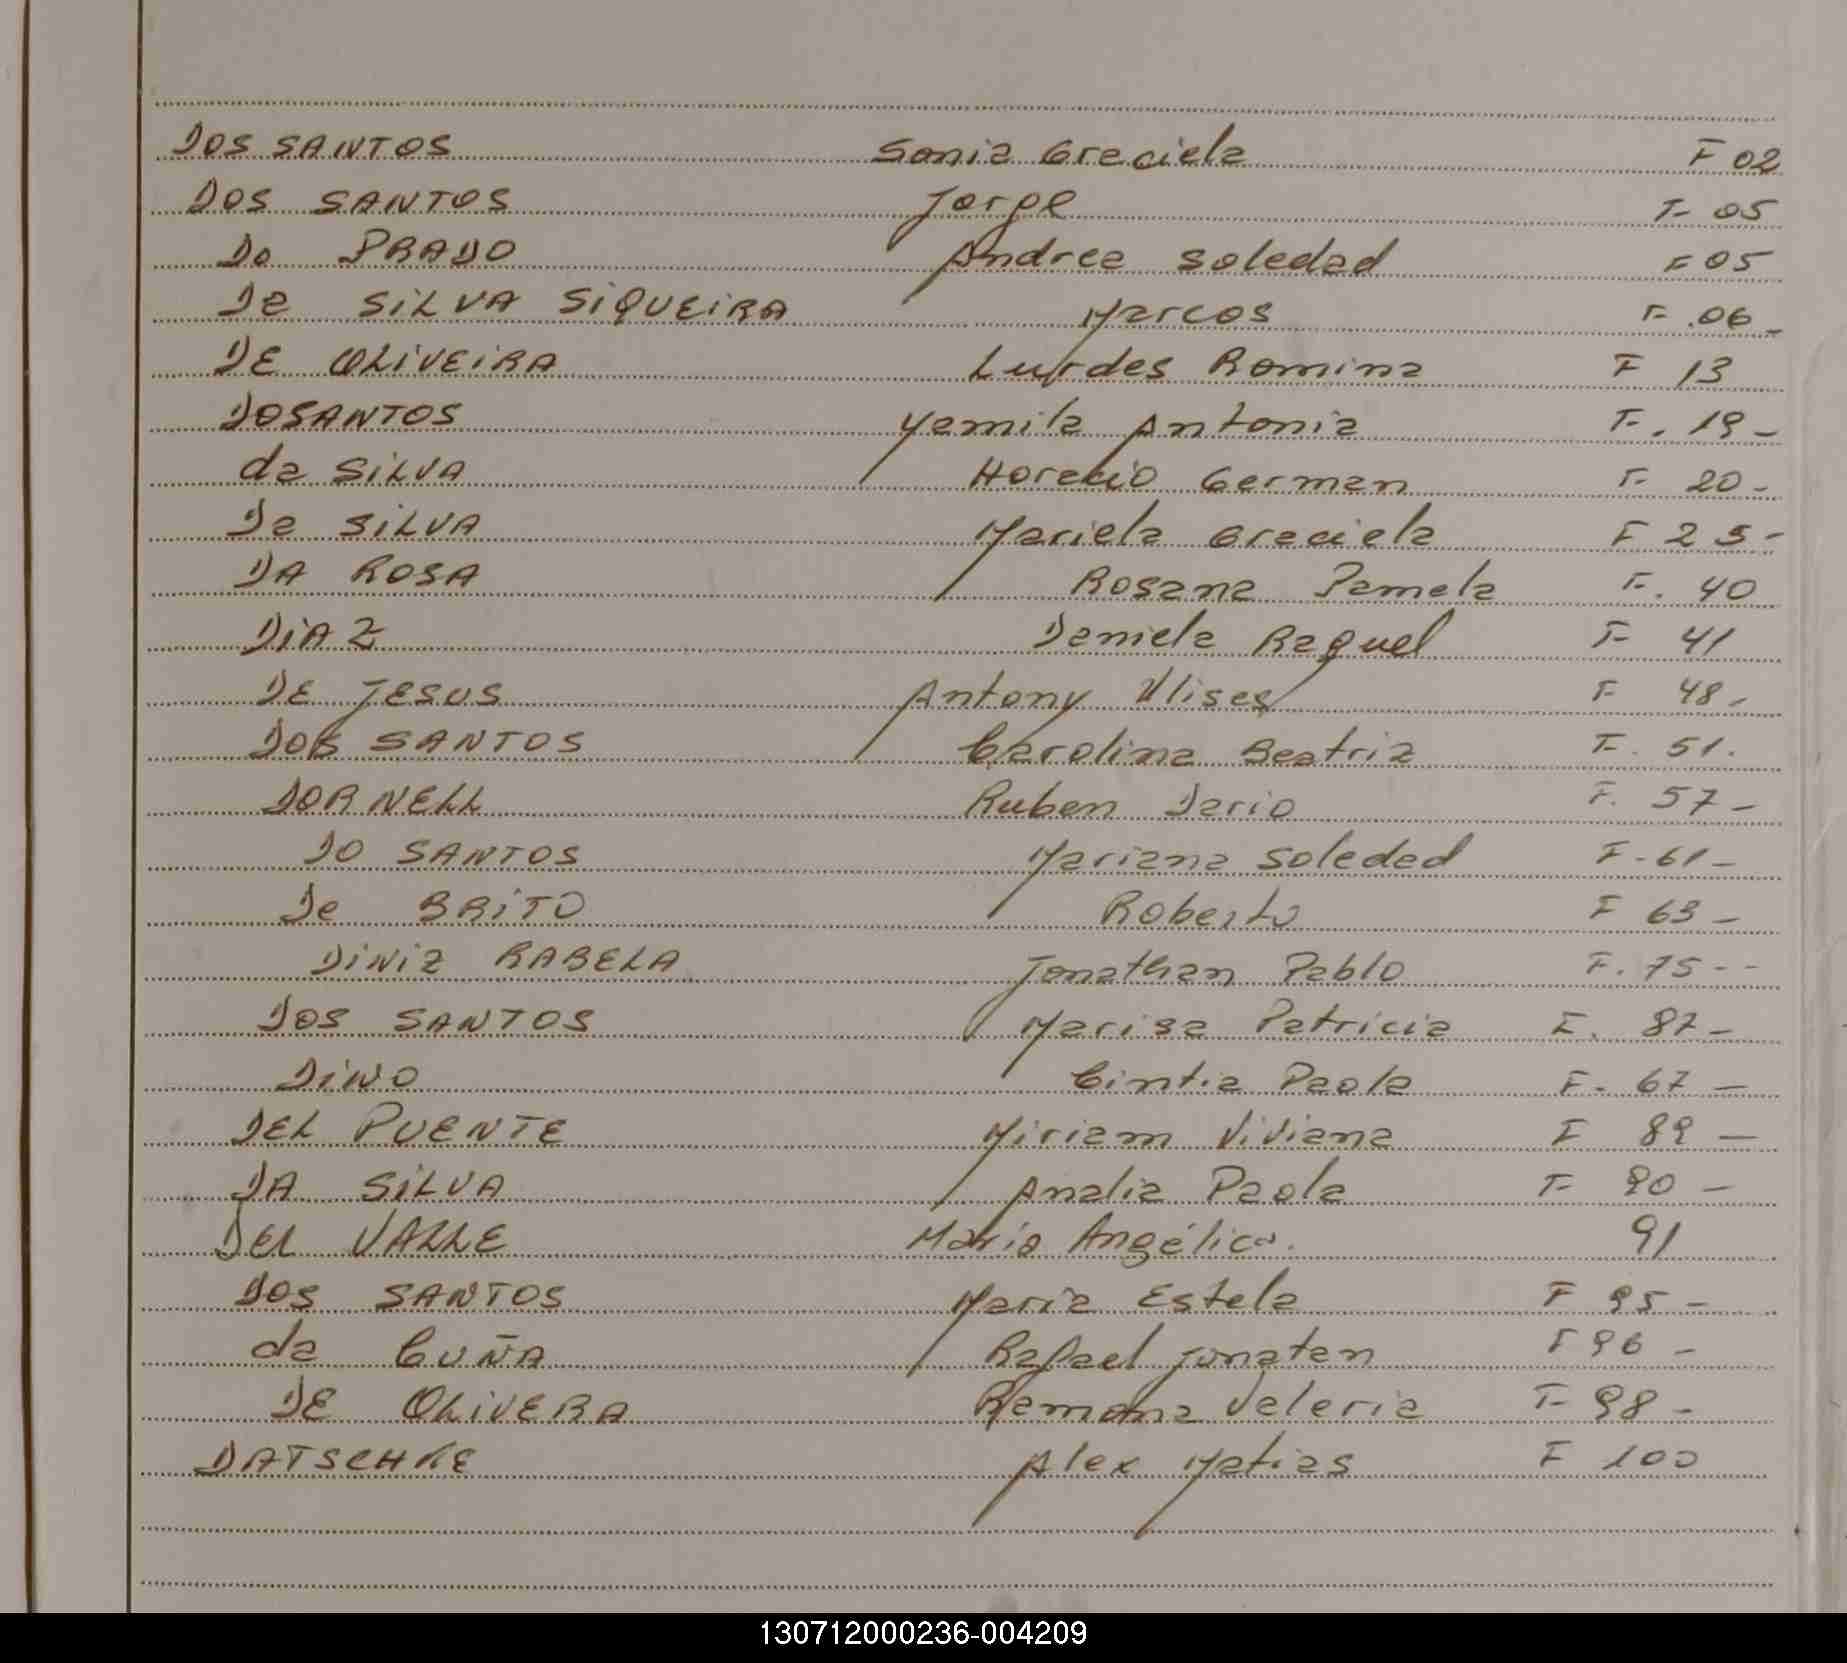 DOS SANTOS Sonia Graciela F 02
DOS SANTOS Jorge F- 05
Do PRADO Andrea Soledad F 05
Da SiLVA SiQUEiRA Marcos F- .06-
DE OLiVEiRA Lurdes Romina F 13
DOSANTOS Yamila Antonia F-. 19-
da SiLVA Horacio German F- 20-
Da SiLVA Mariela Graciela F 25-
DA ROSA Rosana Pamela F-. 40
DiAZ Daniela Raquel F- 41
DE JESUS Antony Ulises F 48-
DOS SANTOS Carolina Beatriz F-. 51.
DORNELL Ruben Dario F. 57-
DO SANTOS Mariana Soledad F-61-
De BRiTO Roberto F 63-
DiNiZ RABELA Jonathan Pablo F. 75--
DOS SANTOS Marisa Patricia F. 87-
DiNO Cintia Paola F- 67-
DEL PUENTE Miriam Viviana F 89-
DA SiLVA Analia Paola F- 90-
Del VALLE María Angélica. 91
DOS SANTOS Maria Estela F 95-
da CUÑA Rafael Jonatan F 96-
DE OLiVERA Ramona Valeria F- 98-
DATSCHKE Alex Matias F 100
130712000236-004209